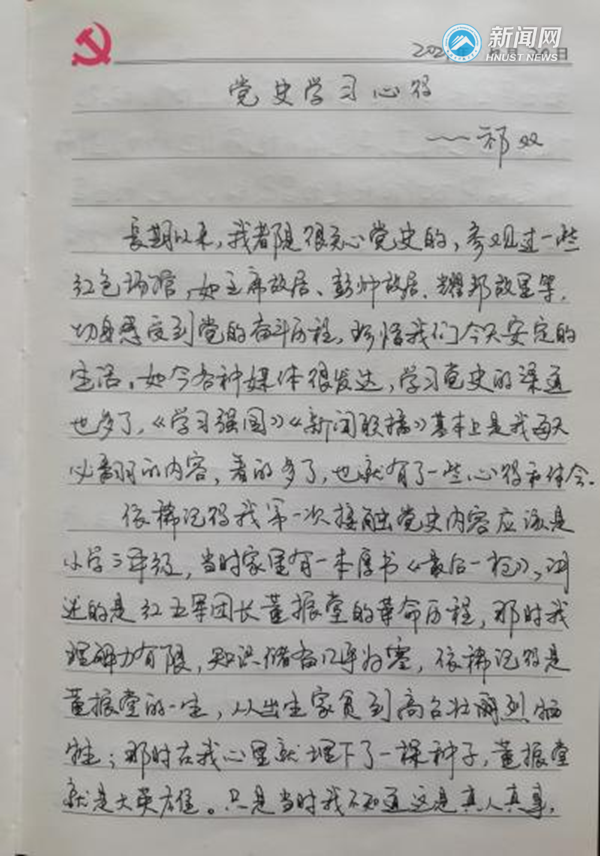 新闻网
HNUST NEWS
202 月20日
党史学习心得
——祁双
长期以来，我都是很关心党史的，参观过一些
红色场馆，如主席故居、彭帅故居、耀邦故里等，
切身感受到党的奋斗历程，珍惜我们今天安定的
生活，如今各种媒体很发达，学习党史的渠道
也多了，《学习强国》《新闻联播》基本上是我每天
必翻的内容，看的多了，也就有了一些心得和体会.
依稀记得我第一次接触党史内容应该是
小学三年级，当时家里有一本厚书《最后一枪》，讲
述的是红五军团长董振堂的革命历程，那时我
理解力有限，知识储备几乎为零，依稀记得是
董振堂的一生，从出生家贫到高台壮烈牺
牲；那时在我心里就埋下了一棵种子，董振堂
就是大英雄。只是当时我不知道这是真人真事，